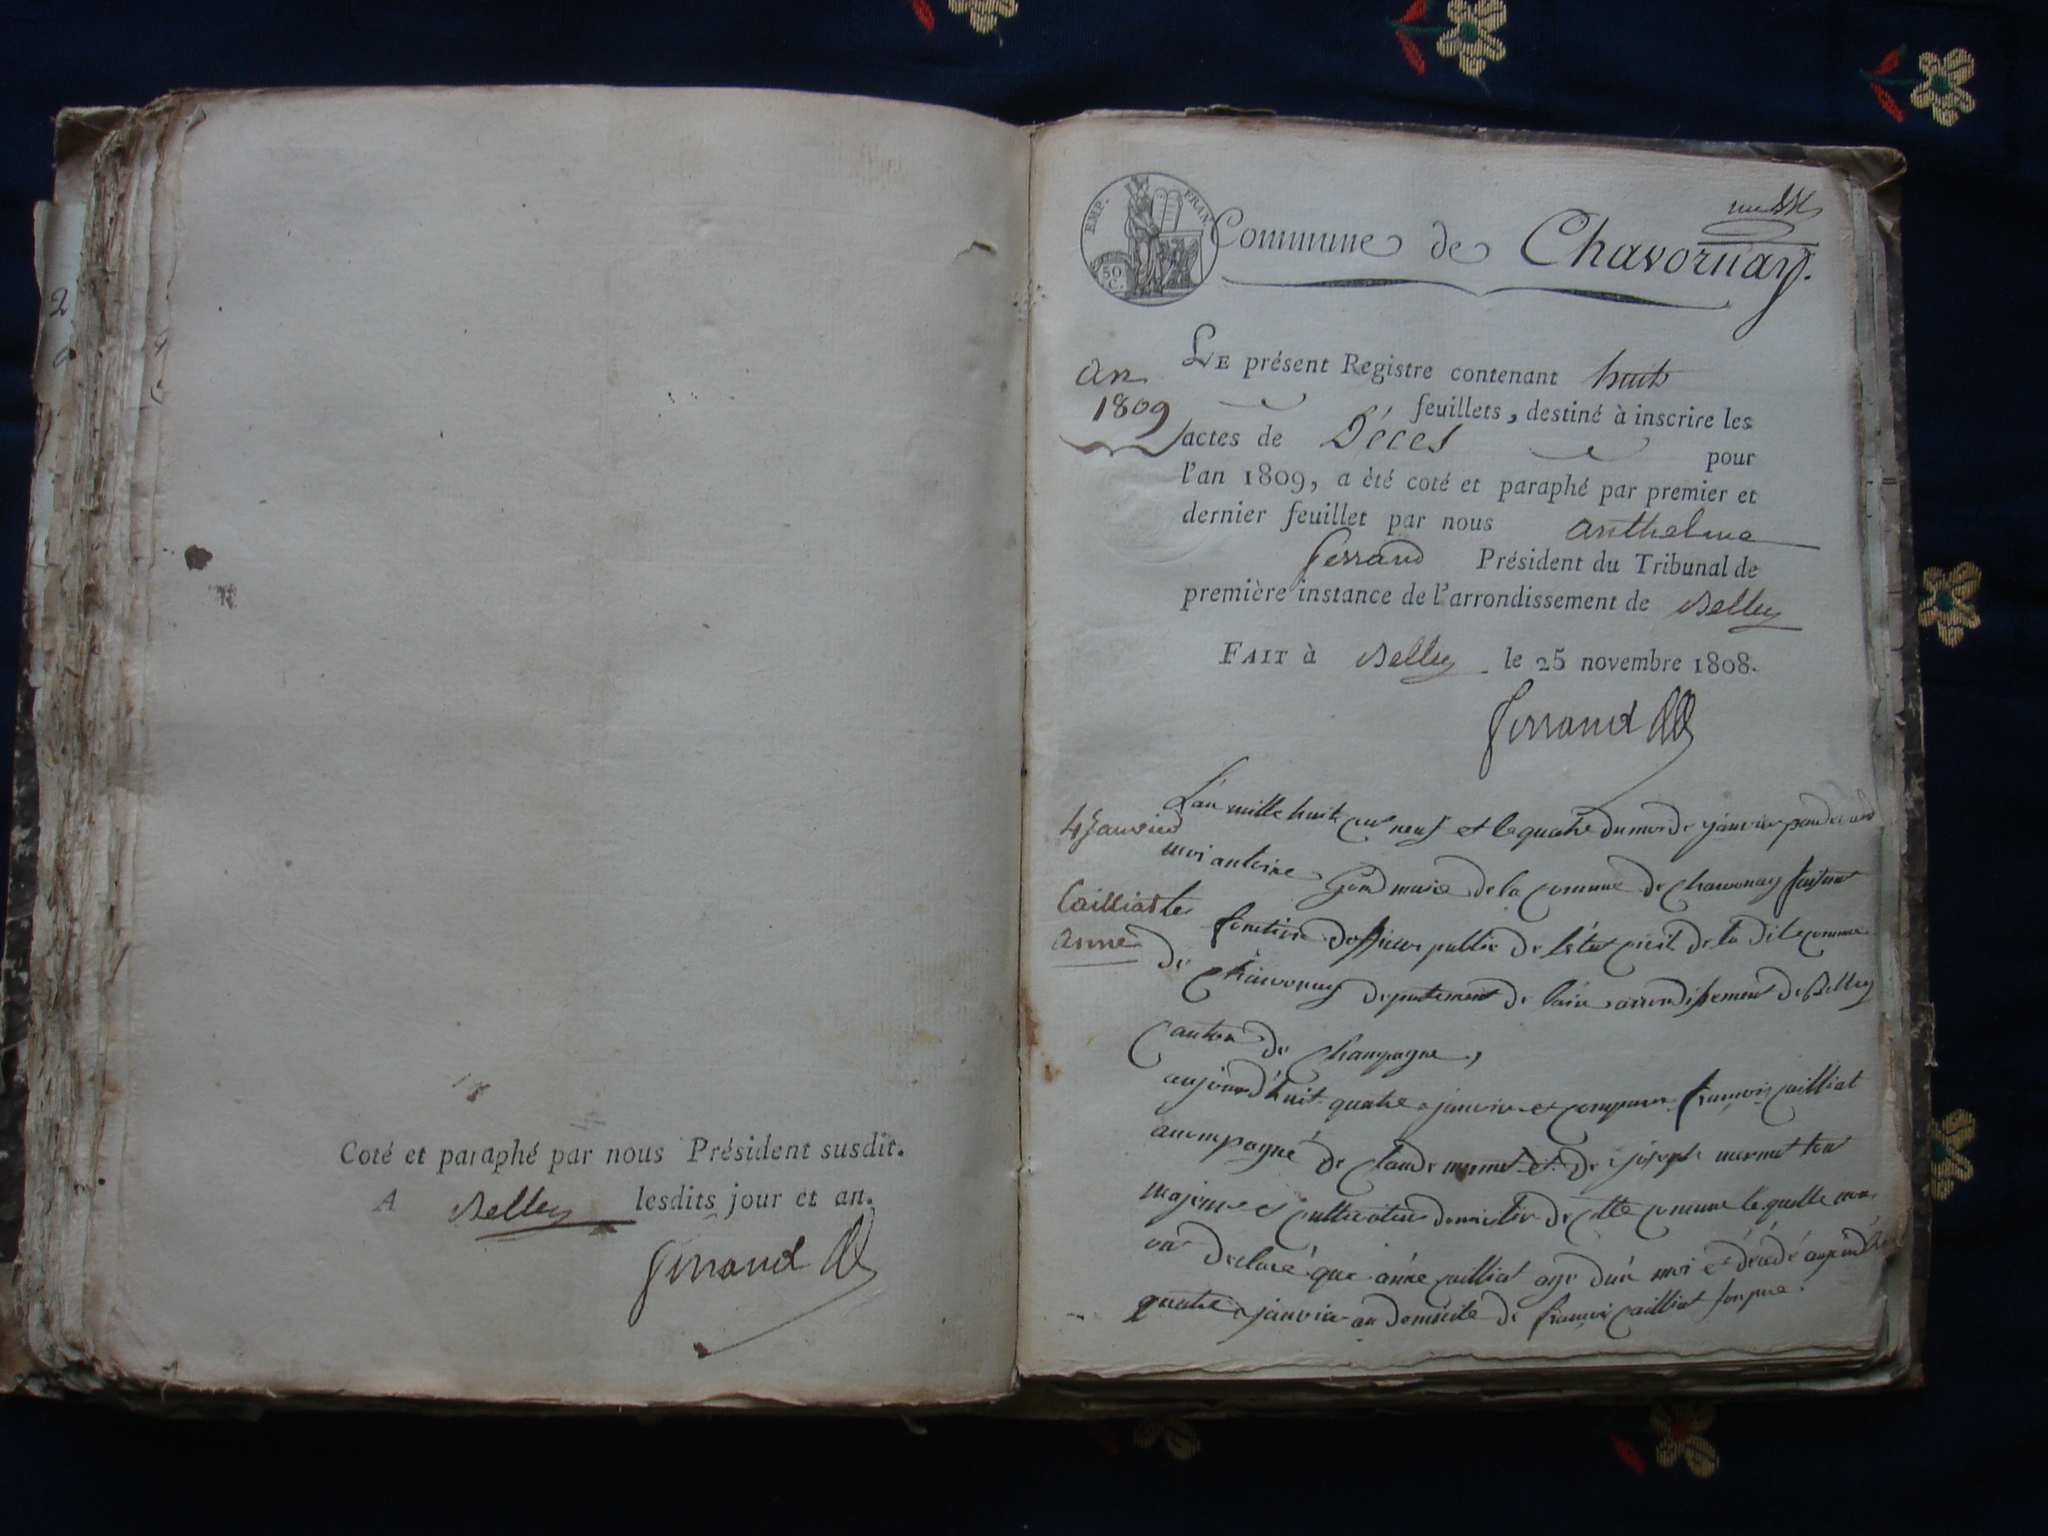 Coté et paraphé par nous Président susdit.
A Belley lesdits jour et an.
Ferrand
EMP. FRAN
50 C.
Commune de Chavornay.
An
1809
LE présent Registre contenant huit
feuillets, destiné à inscrire les
actes de Décès pour
l'an 1809, a été coté et paraphé par premier et
dernier feuillet par nous Anthelme
Ferrand Président du Tribunal de
première instance de l'arrondissement de Belley
FAIT à Belley le 25 novembre 1808.
Ferrand
4 Janvier
Cailliat
Anne
L'an mille huit cent neuf et le quatre du mois de janvier
moi antoine maire de la commune de Chavornay faisant
les fonction public de l'état civil de la dite commune
de Chavornay departement de arrondissement de Belley
Canton de Champagne,
aujourd'huit quatre janvier et françois cailliat
accompagné de Claude et de joseph
majeures cultivateur de cette commune
ont declaré que anne cailliat age d'un moi et décédé
quatre janvier au domicile de françois cailliat son pere.